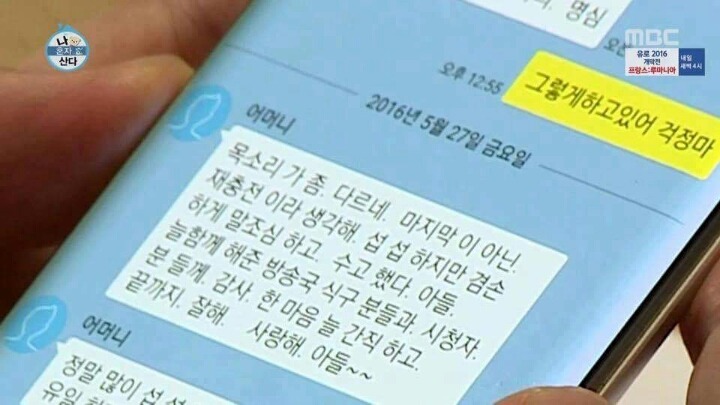 나
혼자 산다
명심
MBC
유로 2016
개막전
프랑스:루마니아
내일
새벽 4시
오후 12:55
그렇게하고있어 걱정마
2016년 5월 27일 금요일
어머니
목소리 가 좀. 다르네. 마지막 이 아닌.
재충전 이라 생각해. 섭 섭 하지만 겸손
하게 말조심 하고. 수고 했다. 아들.
늘함께 해준 방송국 식구 분들과. 시청자.
분 들께. 감사. 한 마음 늘 간직 하고.
끝까지. 잘해. 사랑해. 아들~~
어머니
정말 많이 섭 섭
유일